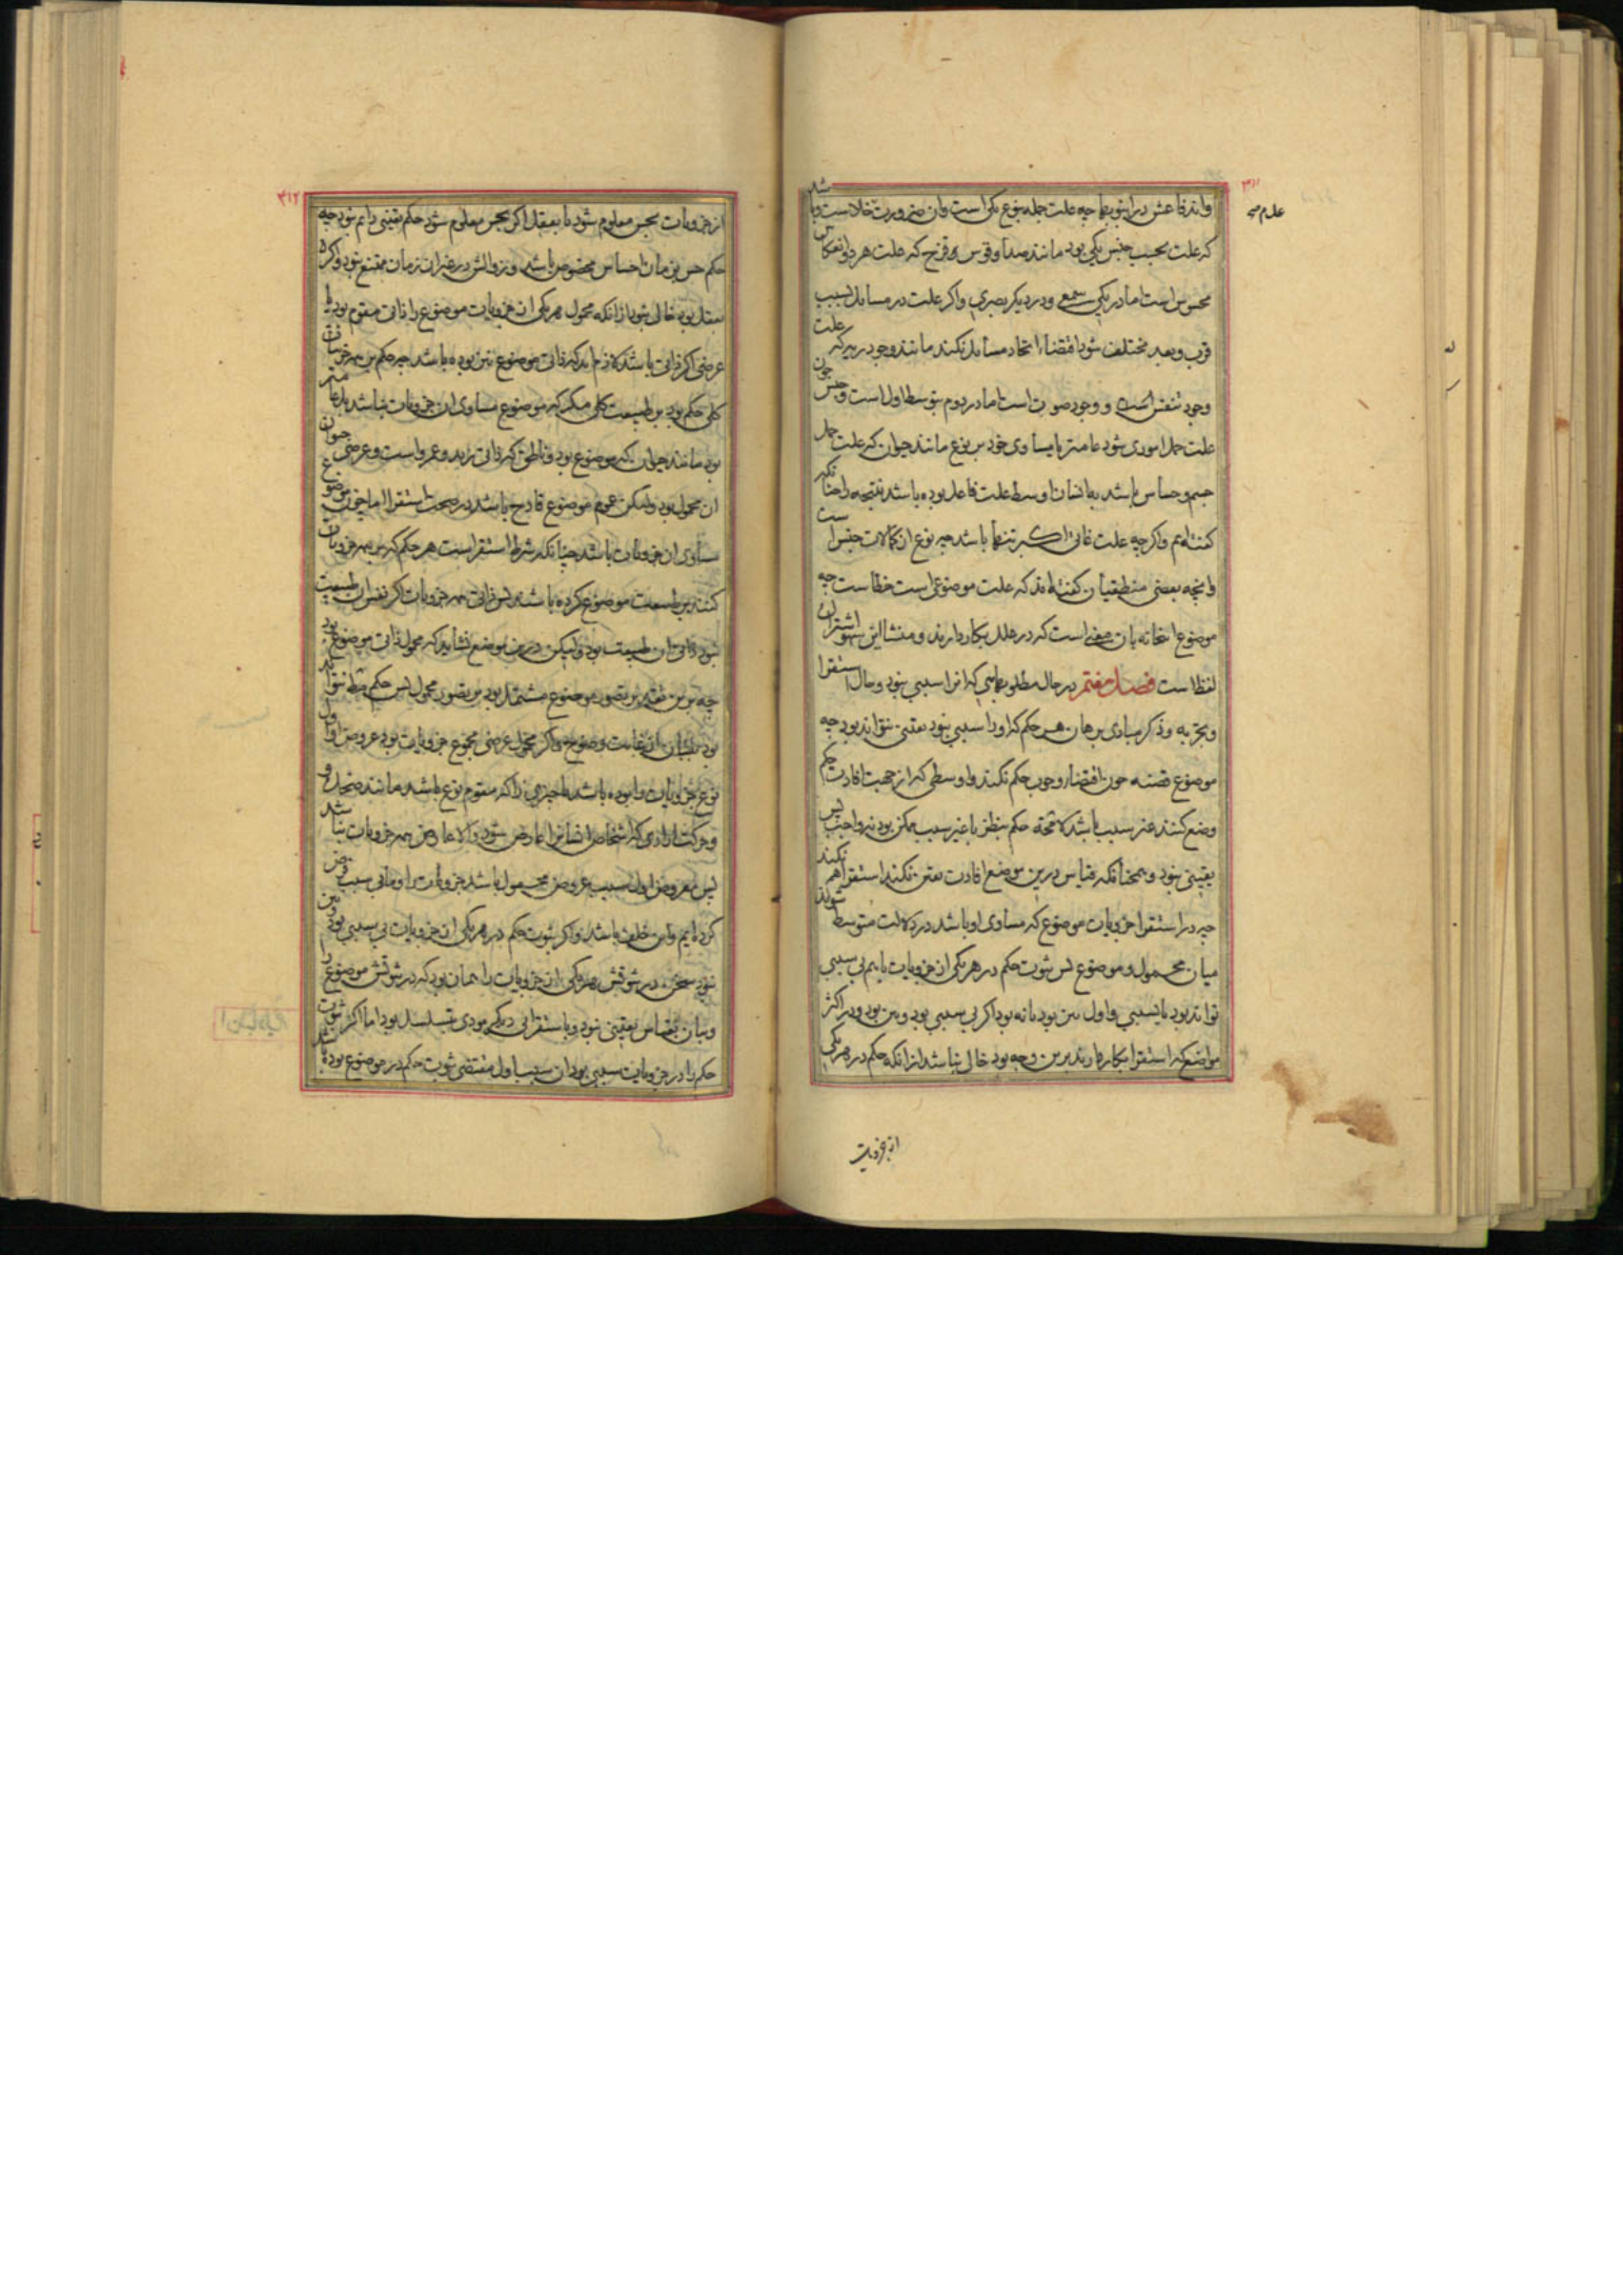 ۳۱۱
واندفاعش در انبوبها چه علت جمله بنوع یکی است وان ضرورت خلاست و باشد
که علت بحسب جنس یکی بود مانند صدا و قوس و قزح که علت هر دو انعکاس
محسوس است اما در یکی سمعی و در دیگر بصری و اگر علت در مسایل بسبب
قرب و بعد مختلف شود اقتضاء اتحاد مسایل نکند مانند وجود ریه که علت
وجود تنفس است و وجود صوت است اما در دوم بتوسط اول است و چون جنس
علت حمل اموری شود عامتر یا مساوی خود بر نوع مانند حیوان که علت حمل
جسم و حساس باشد بر انسان اوسط علت فاعل بوده باشد نتیجه را چنانکه
گفته‌ایم و اگر چه علت غائی اکبر تنها باشد چه نوع از کمالات جنس است
و انچه بعضی منطقیان گفته‌اند که علت موضوعی است خطاست چه
موضوع اینجا نه بان معنی است که در علل بکار دارند و منشا این سهو اشتراک
لفظ است فصل هفتم در حال مطلوبهایی که انرا سببی نبود و حال استقرا
و تجربه و ذکر مبادی برهان هر حکم که او را سببی نبود یقینی نتواند بود چه
موضوع قضیه چون اقتضاء وجوب حکم نکند و اوسطی که از جهت افادت حکم
وضع کنند غیر سبب باشد لا محه حکم بنظر با غیر سبب ممکن بود نه واجب پس
یقینی نبود و همچنانکه قیاس درین موضع افادت یقین نکند استقرا هم نکند
چه در استقرا جزویات موضوع که مساوی او باشد در دلالت متوسط شوند
میان محمول و موضوع پس ثبوت حکم در هر یکی از جزویات یا هم بی سببی
تواند بود یا بسببی و اول بین بود یا نه بود اگر بی سببی بود و بین بود و در اکثر
مواضع که استقرا بکار دارند برین وجه بود خالی نباشد از انکه حکم در هر یکی
از جزویات
۳۱۲
از جزویات بحس معلوم شود یا بعقل اگر بحس معلوم شود حکم یقینی دایم نبود چه
حکم حس بزمان احساس مخصوص باشد و زوالش در غیر ان زمان ممتنع نبود و اگر
بعقل بود خالی نبود از انکه محمول هر یکی از جزویات موضوع را ذاتی مقوم بود یا
عرضی اگر ذاتی باشد لازم اید که ذاتی موضوع نیز بوده باشد چه حکم بر همه جزویات
کلی حکم بود بر طبیعت کلی مگر که موضوع مساوی ان جزویات نباشد بل عامتر
بود مانند حیوان که موضوع بود و ناطق که ذاتی زید و عمرو است و عرضی حیوان
ان محمول بود ولیکن عموم موضوع قادح باشد در صحت استقرا اما چون موضوع
مساوی ان جزویات باشد چنانکه شرط استقراست هر حکم که بر همه جزویات
کنند بر طبیعت موضوع کرده باشند پس ذاتی همه جزویات اگر نفس ان طبیعت
نبود ذاتی ان طبیعت بود ولیکن درین موضع نشاید که محمول ذاتی موضوع بود
چه برین تقدیر تصور موضوع مشتمل بود بر تصور محمول پس حکم مط نتواند
بود بلکه بیان از غایت وضوح و اگر محمول عرضی مجموع جزویات بود عروض او اول
نوع جزویات را بوده باشد یا چیزی را که مقوم نوع باشد مانند ضحک و
و حرکت ارادی که اشخاص انسانرا عارض شود والا عارض همه جزویات نباشد
پس معروض اول سبب عروض محمول باشد جزویات را و ما بی سبب فرض
کرده‌ایم و این خلف باشد و اگر ثبوت حکم در هر یکی از جزویات بی سببی بود و بین
نبود سخن در ثبوتش هر یکی از جزویات را همان بود که در ثبوتش موضوع را
و بیان بقیاس یقینی نبود و باستقرائی دیگر مودی بتسلسل بود اما اگر ثبوت
حکم را در جزویات سببی بود ان سبب اول مقتضی ثبوت حکم در موضوع بوده باشد